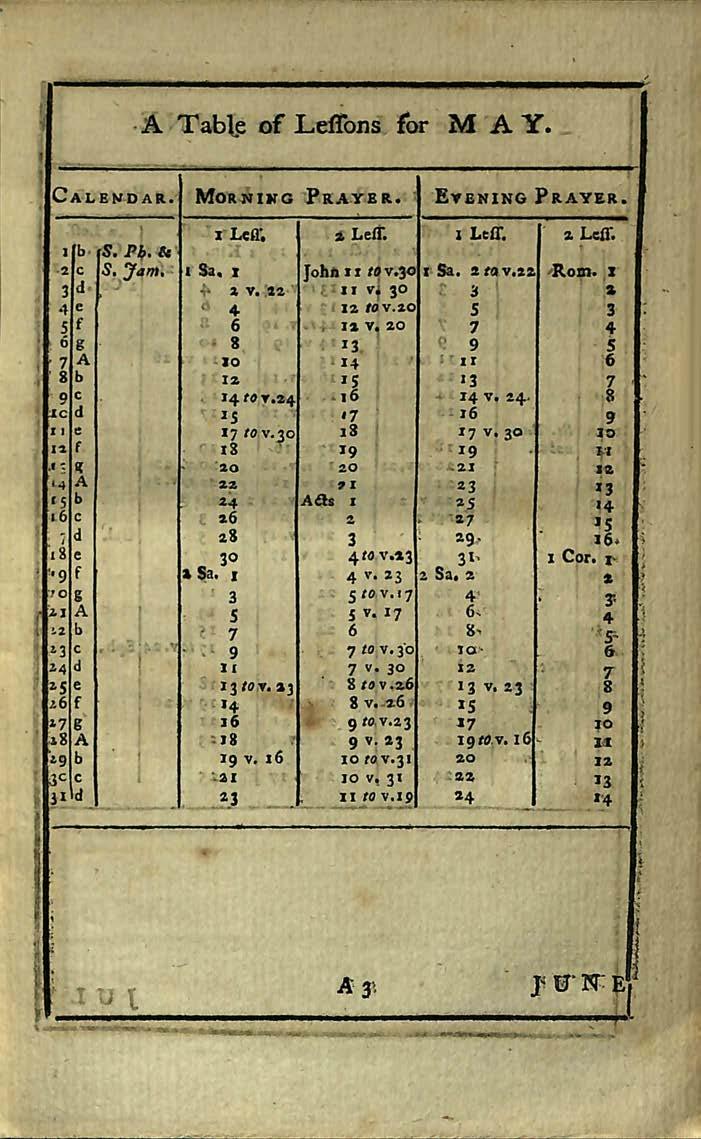 A Table of Leſſons for MAY.
CALENDAR. MORNING PRAYER. EVENING PRAYER.
1 Leſſ. 2 Leſſ. 1 Leſſ. 2 Leſſ.
1 b S. Ph. &
2 c S. Jam. 1 Sa. 1 John 11 to v.30 1 Sa. 2 to v.22 Rom. 1
3 d 2 v. 22 11 v. 30 3 2
4 e 4 12 to v.20 5 3
5 f 6 12 v. 20 7 4
6 g 8 13 9 5
7 A 10 14 11 6
8 b 12 15 13 7
9 c 14 to v.24 16 14 v. 24. 8
10 d 15 17 16 9
11 e 17 to v.30 18 17 v. 30 10
12 f 18 19 19 11
13 g 20 20 21 12
14 A 22 21 23 13
15 b 24 Acts 1 25 14
16 c 26 2 27 15
7 d 28 3 29 16
18 e 30 4 to v.23 31 1 Cor. 1
19 f 2 Sa. 1 4 v. 23 2 Sa. 2 2
20 g 3 5 to v.17 4 3
21 A 5 5 v. 17 6 4
22 b 7 6 8 5
23 c 9 7 to v.30 10 6
24 d 11 7 v. 30 12 7
25 e 13 to v. 23 8 to v.26 13 v. 23 8
26 f 14 8 v. 26 15 9
27 g 16 9 to v.23 17 10
28 A 18 9 v. 23 19 to v. 16 11
29 b 19 v. 16 10 to v.31 20 12
30 c 21 10 v. 31 22 13
31 d 23 11 to v.19 24 14
A 3 JUNE